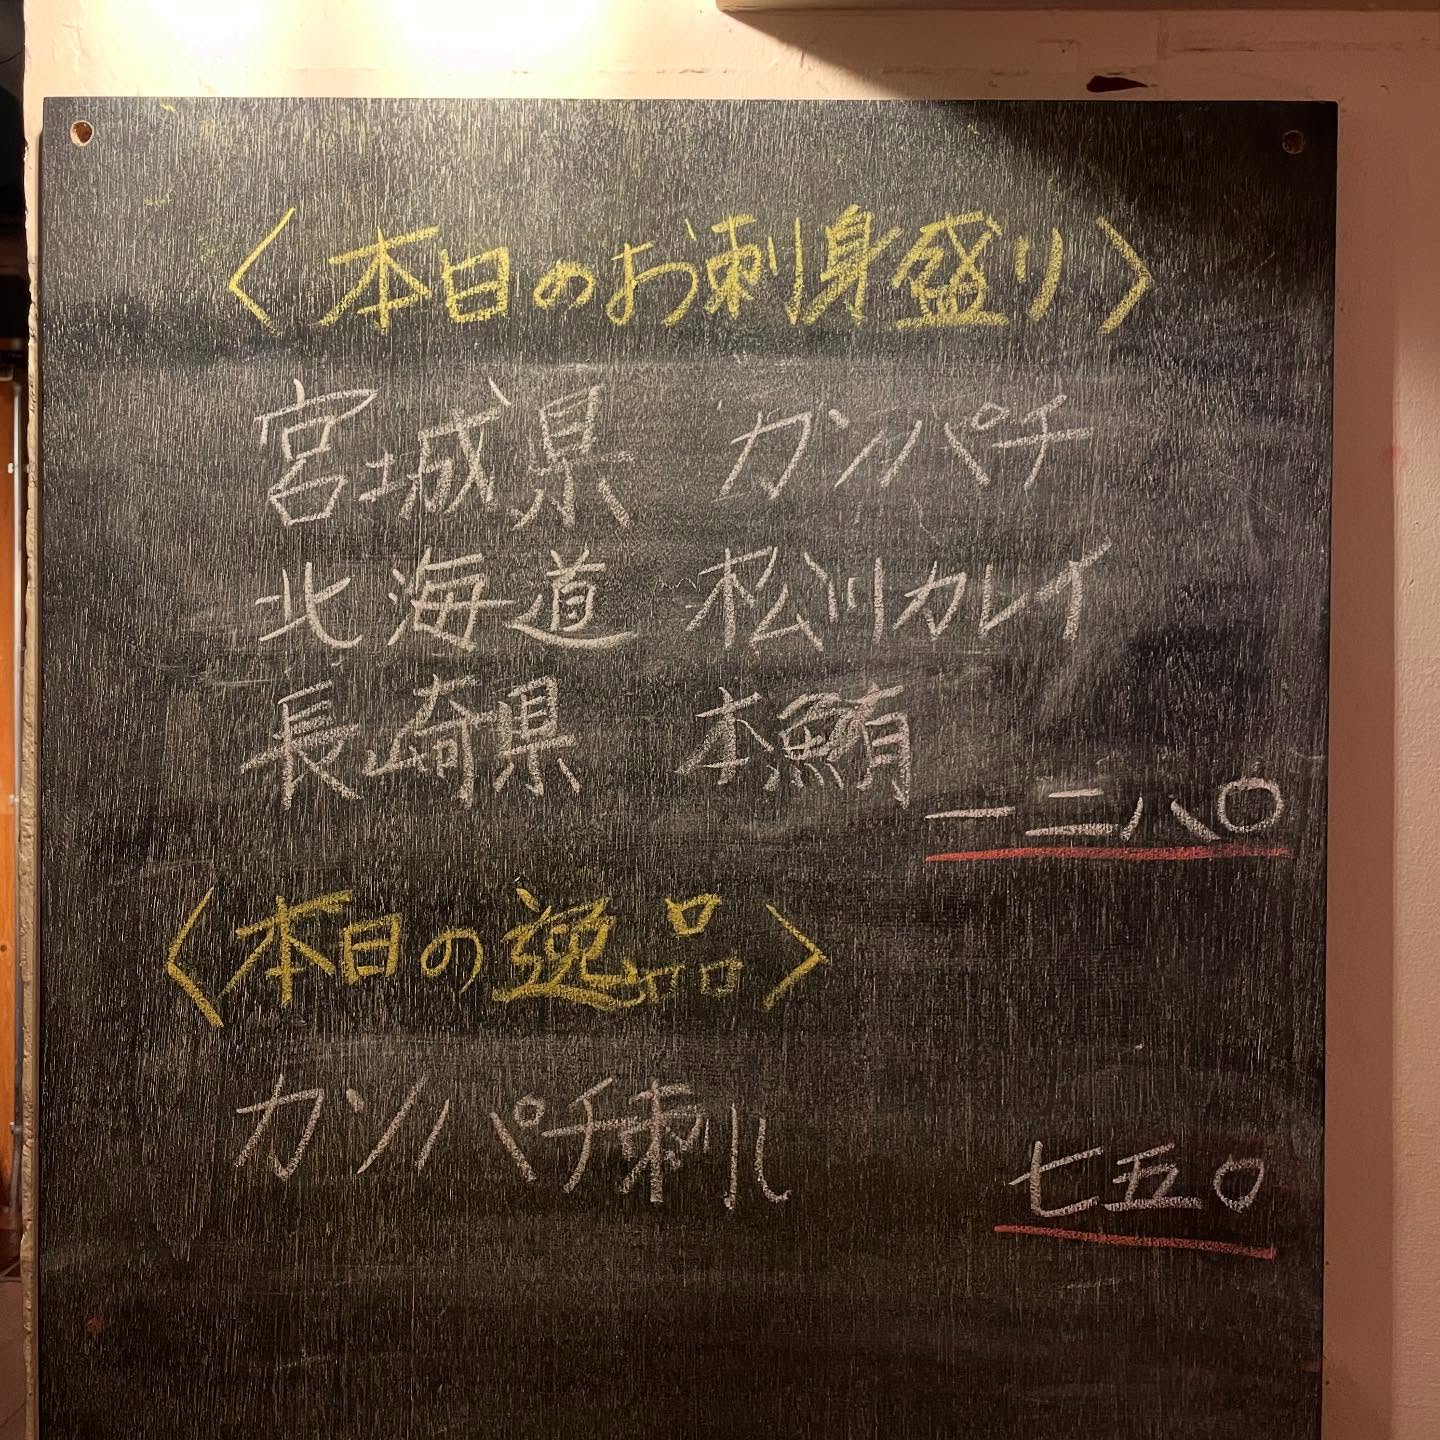 〈本日のお刺身盛り〉
宮城県 カンパチ
北海道 松川カレイ
長崎県 本鮪
一二八〇
〈本日の逸品〉
カンパチ刺し
七五〇